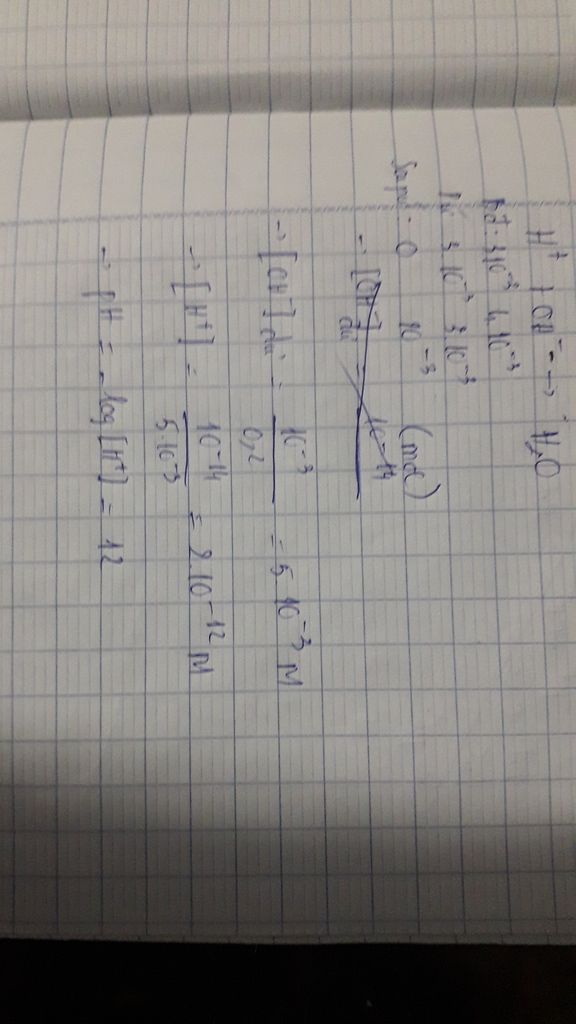 H⁺ + OH⁻ → H₂O
Bđ: 3.10⁻³ 4.10⁻³
Pứ: 3.10⁻³ 3.10⁻³
Sau pứ: 0 10⁻³ (mol)
→ [OH⁻] dư = 10⁻¹⁴
→ [OH⁻] dư = 10⁻³ / 0,2 = 5.10⁻³ M
→ [H⁺] = 10⁻¹⁴ / 5.10⁻³ = 2.10⁻¹² M
→ pH = -log[H⁺] = 12